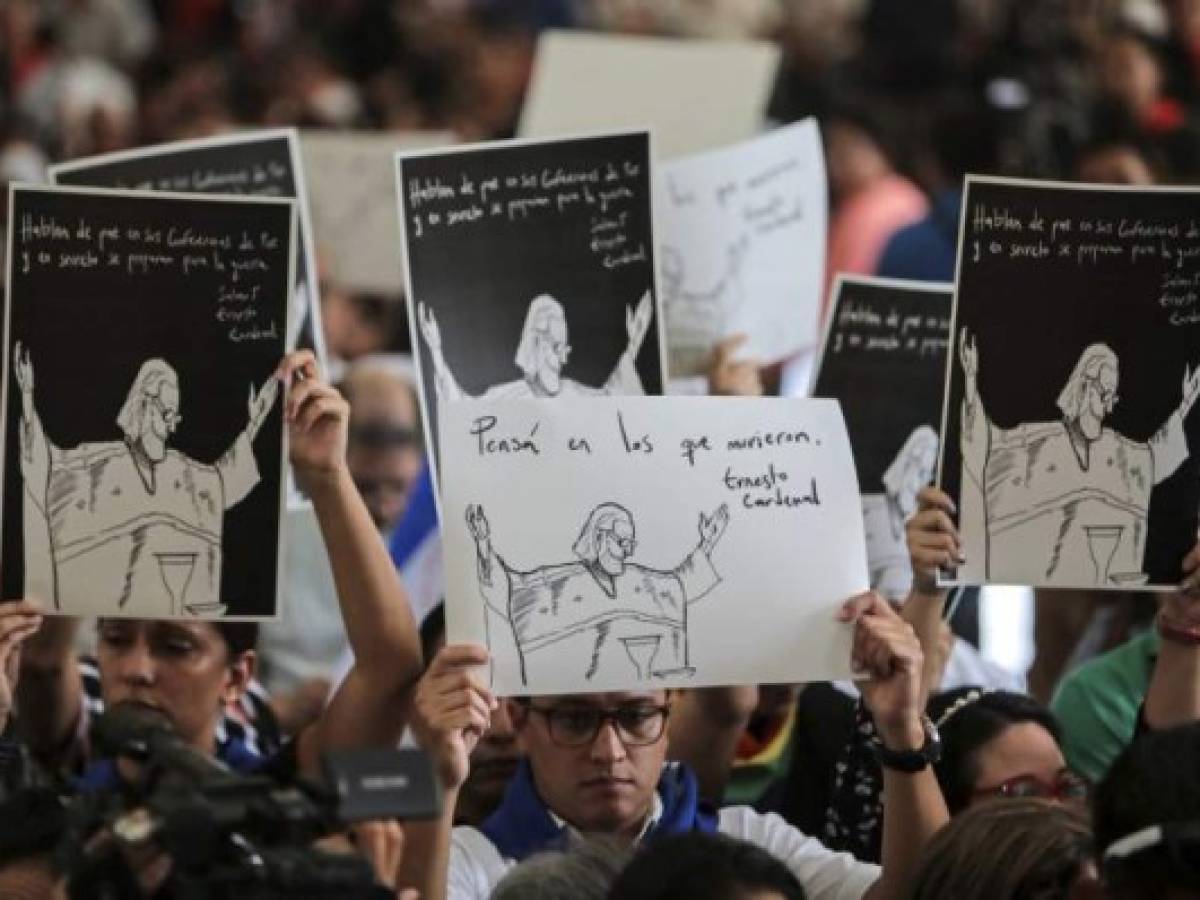 Hablan de paz en sus Conferencias de Paz
y en secreto se preparan para la guerra
Salmo 5
Ernesto
Cardenal
Hablan de paz en sus Conferencias de Paz
y en secreto se preparan para la guerra
Salmo 5
Ernesto
Cardenal
Pensá en los que murieron.
Ernesto
Cardenal
que murieron.
Ernesto
Hablan de paz en sus
y en secreto se
Hablan de paz en sus Conferencias de
y en secreto se preparan para la guerra
Salmo 5
Ernesto
Cardenal